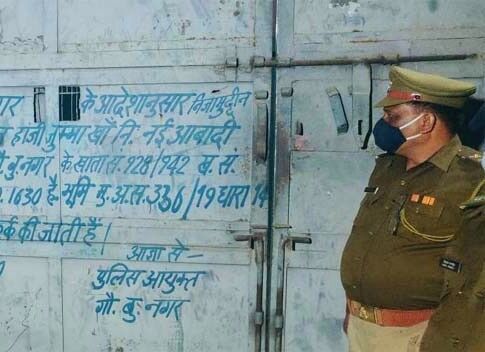 के आदेशानुसार निजामुद्दीन
हाजी जुम्मा खाँ नि. नई आबादी
बु. नगर के खाता सं. 128/142 ख. सं.
1630 है. भूमि मु. अ. सं. 336/19 धारा 14
की जाती हैं।
आज्ञा से-
पुलिस आयुक्त
गौ. बु. नगर